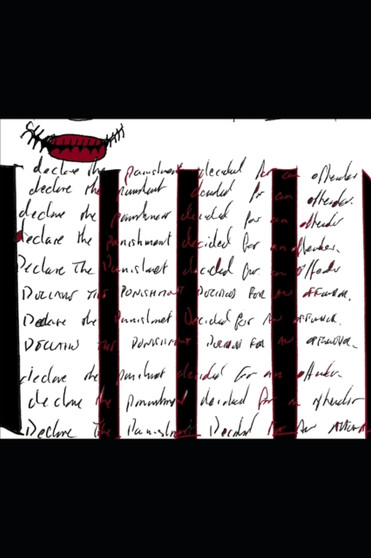 declare the punishment decided for an offender
declare the punishment decided for an offender.
declare the punishment decided for an offender
declare the punishment decided for an offender.
Declare The Punishment decided for an offender
DECLARE THE PUNISHMENT DECIDED FOR AN OFFENDER.
Declare the Punishment Decided for AN OFFENDER.
DECLARE THE PUNISHMENT DECIDED FOR AN OFFENDER.
declare the punishment decided for an offender.
declare the punishment decided for an offender
Declare The Punishment Decided for An